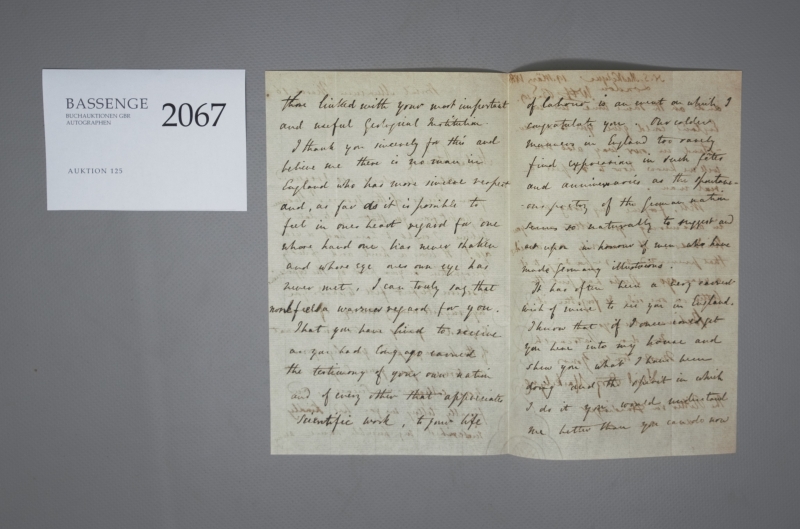 BASSENGE
BUCHAUKTIONEN GBR
AUTOGRAPHEN
2067
AUKTION 125
thou linked with your most important
and useful Geological Institution.
I thank you sincerely for this and
believe me there is no man in
England who has more sincere respect
and, as far as it is possible to
feel in ones heart regard for one
whose hand one has never shaken
and whose eye ones own eye has
never met, I can truly say that
none feels a warmer regard for you.
That you have lived to receive
as you had long ago earned
the testimony of your own nation
and of every other that appreciate
Scientific work, to your life
of labour is an event on which I
congratulate you. Our colder
manners in England too rarely
find expression in such fêtes
and anniversaries as the spontane-
ous poetry of the German nation
seems so naturally to suggest and
act upon in honour of men who have
made Germany illustrious.
It has often been a very earnest
wish of mine to see you in England.
I know that if I once could get
you here into my house and
shew you what I have been
doing and the spirit in which
I do it you would understand
me better than you can do now